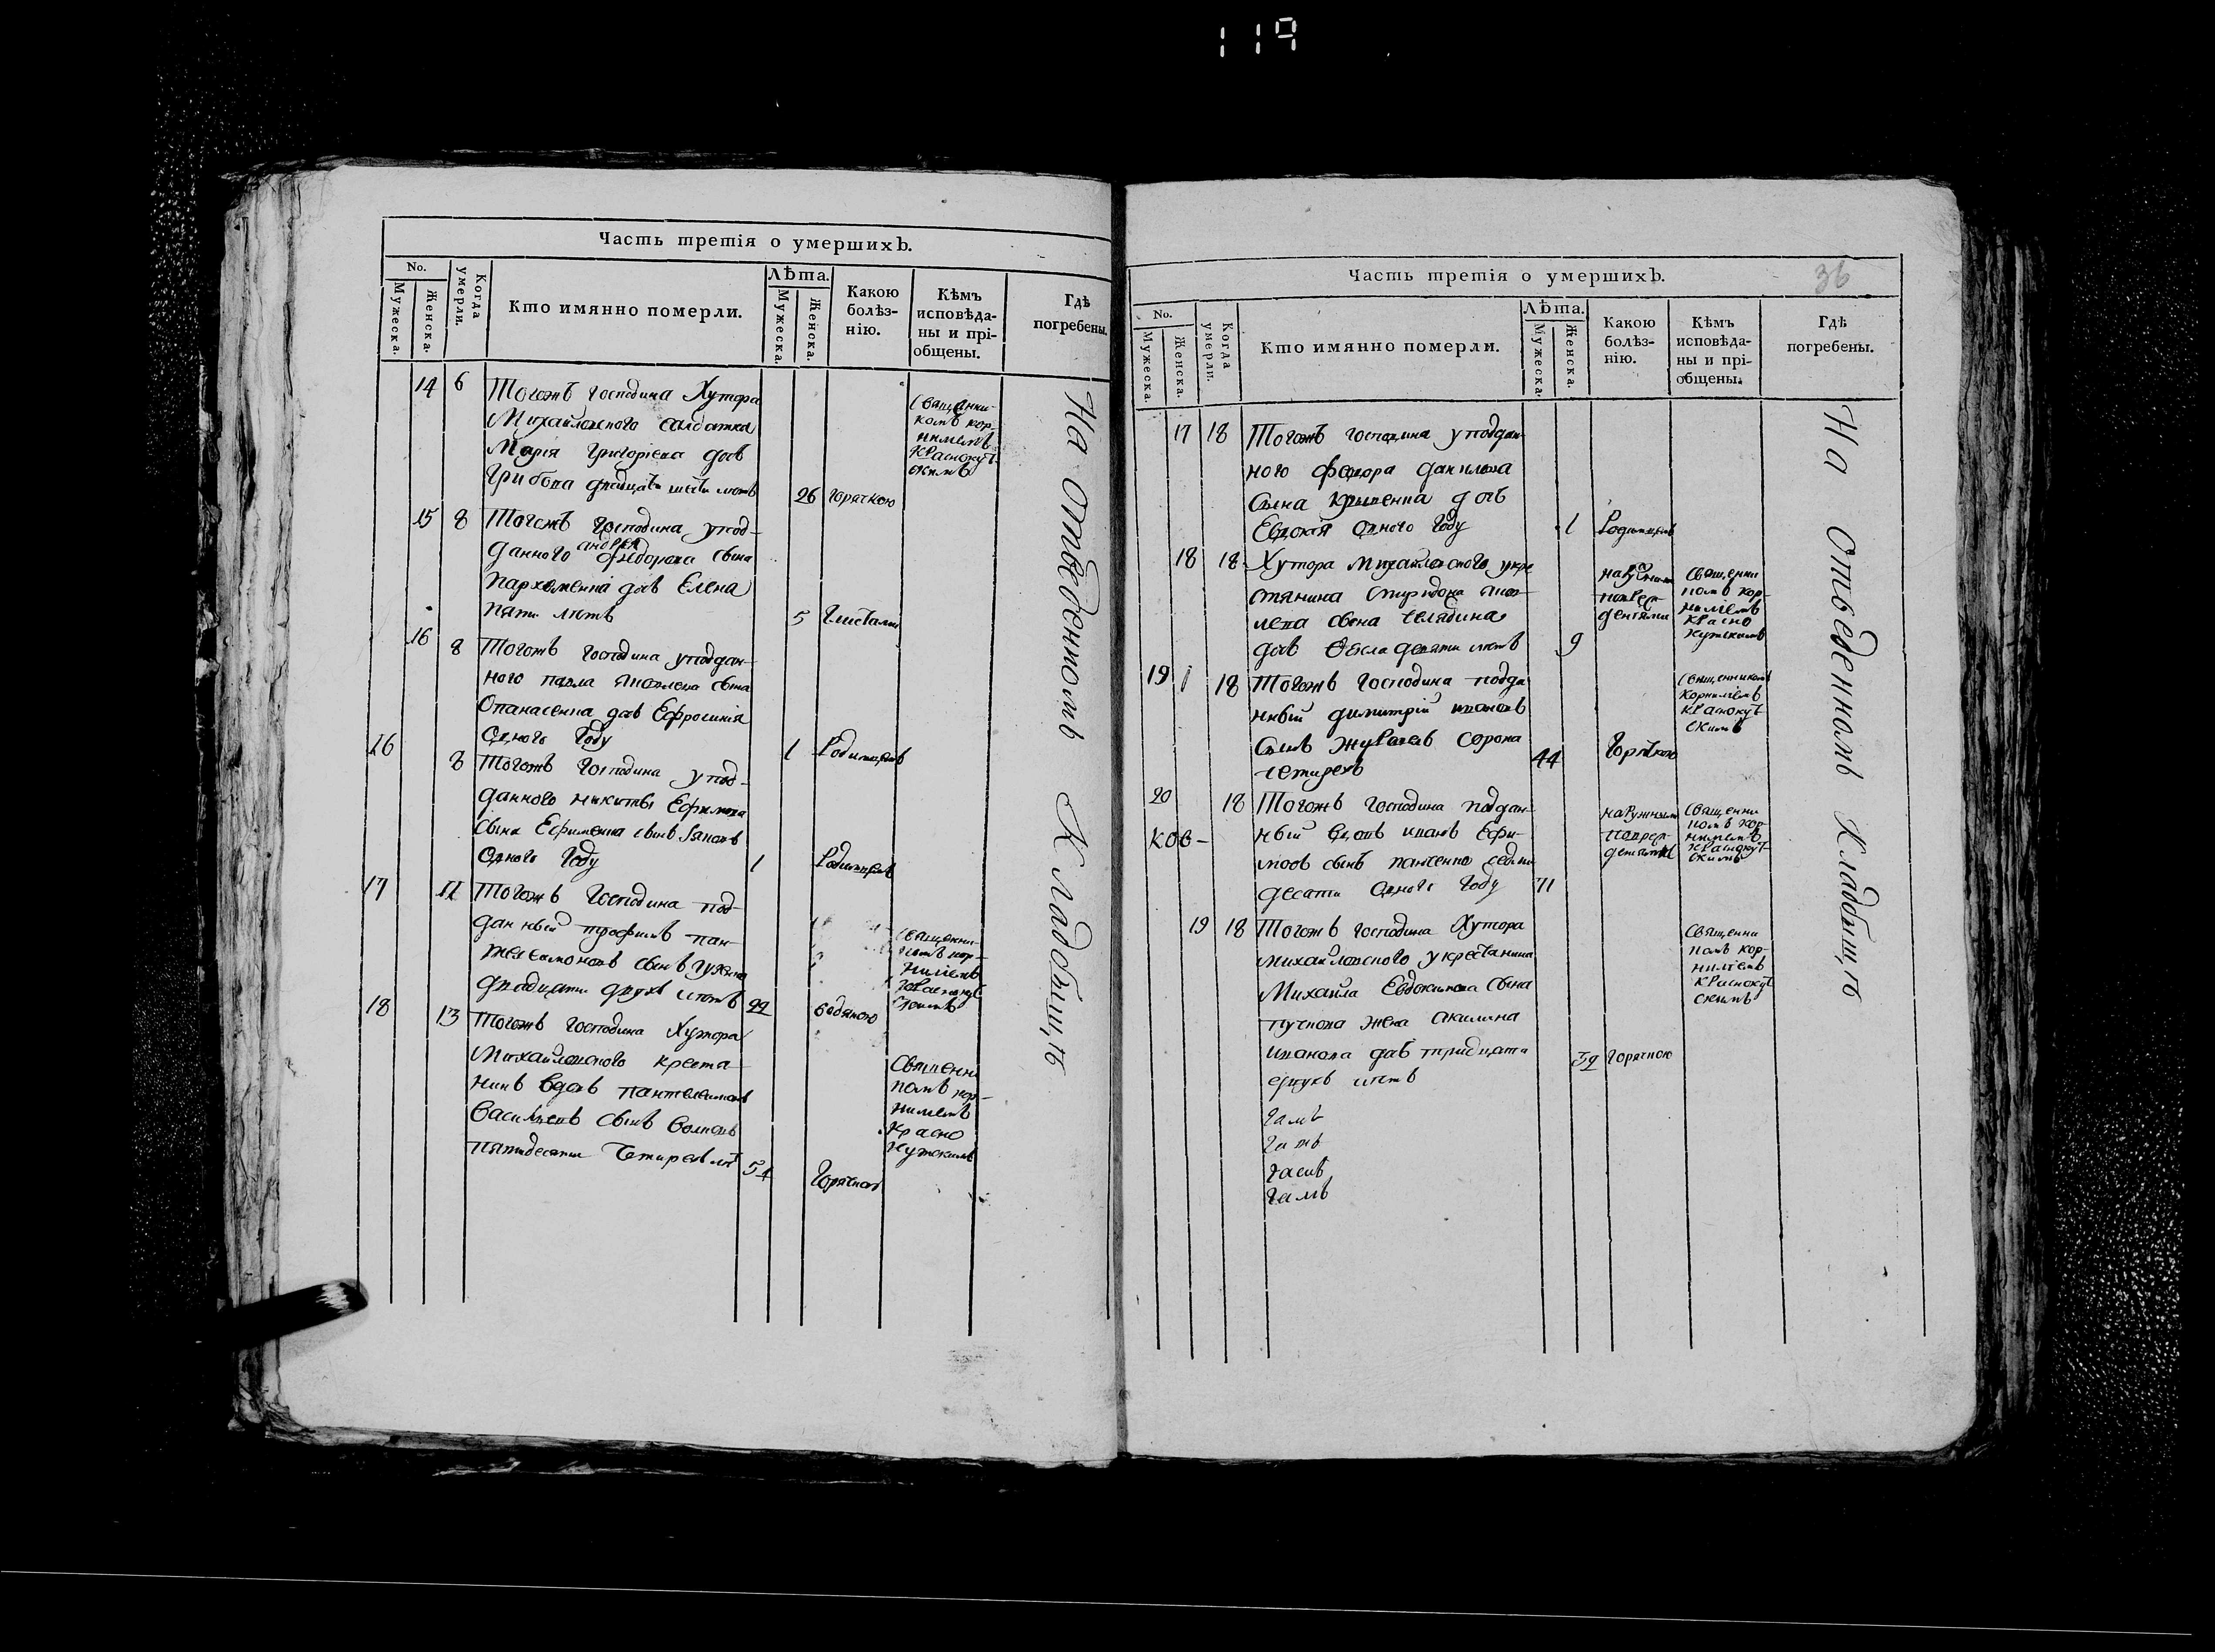 119
Часть третія о умершихъ.
No.
Мужеска.
Женска.
Когда умерли.
Кто имянно померли.
Лѣта.
Мужеска.
Женска.
Какою болѣз-
нію.
Кѣмъ
исповѣда-
ны и прі-
общены.
Гдѣ
погребены.
14 6 Тогожъ господина Хутора
Михайловского солдатка
Марія Григоріева доч
Грибова двадцать шесть летъ 26 горячкою
Священни-
комъ кор-
нилиемъ
Краснокут-
скимъ
15 8 Тогожъ господина упод-
данного андрея федорова сына
Пархоменка доч Елена
пяти летъ 5
16 8 Тогожъ господина уподдан-
ного павла сына
Опанасенка доч Ефросинія
Одного Году 1 Родимцемъ
16 8 Тогожъ господина упод-
данного никиты Ефимова
сына Ефименка сынъ
Одного Году 1 Родимцемъ
17 11 Тогожъ Господина под-
данный трофимъ пан-
телеимоновъ сынъ
двадцати двухъ летъ 22 водяною
Священни-
комъ кор-
нилиемъ
Краснокут-
скимъ
18 13 Тогожъ Господина Хутора
Михайловского крестя-
нинъ вдовъ пантелеимонъ
Васильевъ сынъ
пятидесяти Четирехъ лет 54 Горячкою
Священни-
комъ кор-
нилиемъ
Красно
кутскимъ
На отведенномъ Кладбищѣ
36
Часть третія о умершихъ.
No.
Мужеска.
Женска.
Когда умерли.
Кто имянно померли.
Лѣта.
Мужеска.
Женска.
Какою
болѣз-
нію.
Кѣмъ
исповѣда-
ны и прі-
общены.
Гдѣ
погребены.
17 18 Тогожъ господина уподдан-
ного федора данилова
сына доч
Евдокія одного Году 1 Родимцемъ
18 18 Хутора Михайловского укре
стянина спиридона
сына Челядина
доч Фекла девяти летъ 9
наружними
повреж-
деніями
Священни
комъ кор-
нилиемъ
Красно
кутскимъ
19 18 Тогожъ Господина подда
нный димитрій ивановъ
Сынъ Журавлевъ Сорока
четирехъ 44 Горячкою
Священникомъ
Корнилиемъ
Краснокут-
скимъ
20 18 Тогожъ Господина поддан-
ный вдовъ иванъ Ефи-
мовъ сынъ седми
десяти Одного Году 71
ков-
наружними
повреж-
деніями
Священни
комъ кор-
нилиемъ
Краснокут-
скимъ
19 18 Тогожъ Господина Хутора
михайловского укрестянина
Михаила Евдокимова Сына
жена Акилина
иванова доч тридцати
двухъ летъ 32 горячкою
Священни
комъ кор-
нилиемъ
Краснокут
скимъ
На отведенномъ Кладбищѣ